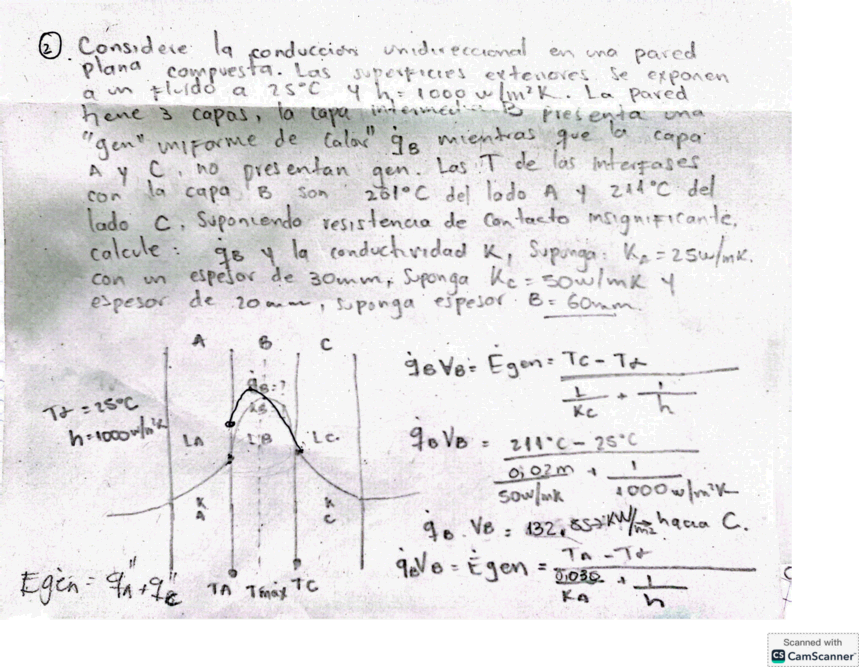 ② Considere la conducción unidireccional en una pared
plana compuesta. Las superficies exteriores se exponen
a un fluido a 25°C y h = 1000 w/m²K. La pared
tiene 3 capas, la capa intermedia B presenta una
"gen" uniforme de Calor" q̇B mientras que la capa
A y C, no presentan gen. Las T de las interfases
con la capa B son 261°C del lado A y 211°C del
lado C, Suponiendo resistencia de contacto insignificante,
calcule: q̇B y la conductividad K, Suponga: KA = 25w/mK.
con un espesor de 30mm, Suponga Kc = 50w/mK y
espesor de 20mm, suponga espesor B = 60mm
A B C
q̇B = ?
KB = ?
Tα = 25°C
h = 1000 w/m²K
LA LB LC
KA KC
TA Tmáx TC
Egen = q"A + q"C
q̇B VB = Ėgen = TC - Tα / 1/Kc + 1/h
q̇B VB = 211°C - 25°C / 0,02m/50w/mK + 1/1000 w/m²K
q̇B . VB = 132,857 KW/m² hacia C.
q̇B VB = Ėgen = TA - Tα / 0,030/KA + 1/h
Scanned with
CS CamScanner